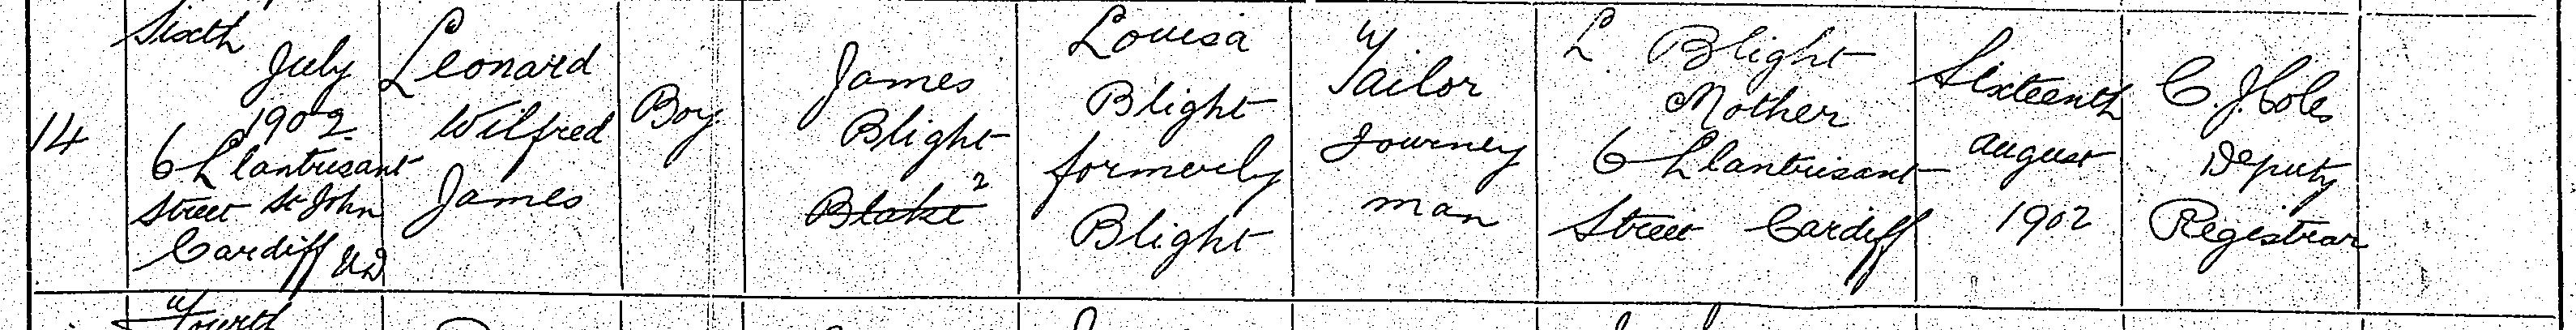 14
Sixth
July
1902
6 Llantrisant
Street St John
Cardiff UD
Leonard
Wilfred
James
Boy
James
Blight
Blake 2
Louisa
Blight
formerly
Blight
Tailor
Journey
man
L Blight
Mother
6 Llantrisant
Street Cardiff
Sixteenth
August
1902
C. J. Coles
Deputy
Registrar
Fourth